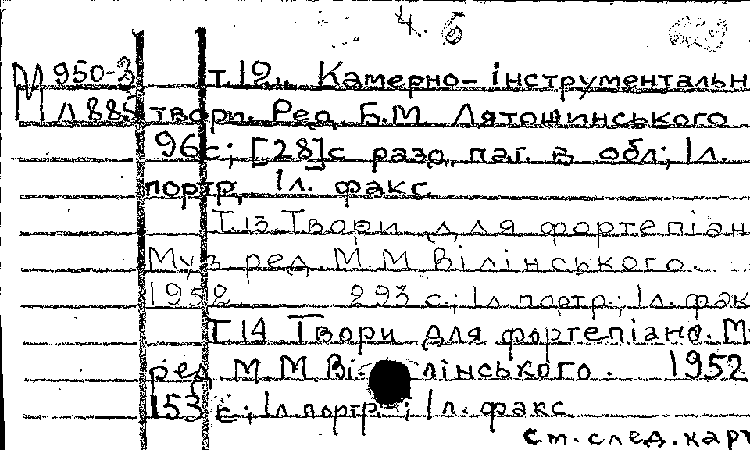 4. 6
М 950-3 т.12. Камерно-інструментальн
Л 885 твори. Ред. Б.М. Лятошинського
96с; [28]с разд. паг. в обл; 1л.
портр, 1л. факс.
Т.13 Твори для фортепіан
Муз ред М М Вілінського.
1952 293 с.; 1л портр.; 1л. фак
Т.14 Твори для фортепіано. М
ред М М Ві лінського. 1952
153 с; 1л.портр.; 1л. факс
см.след.карт